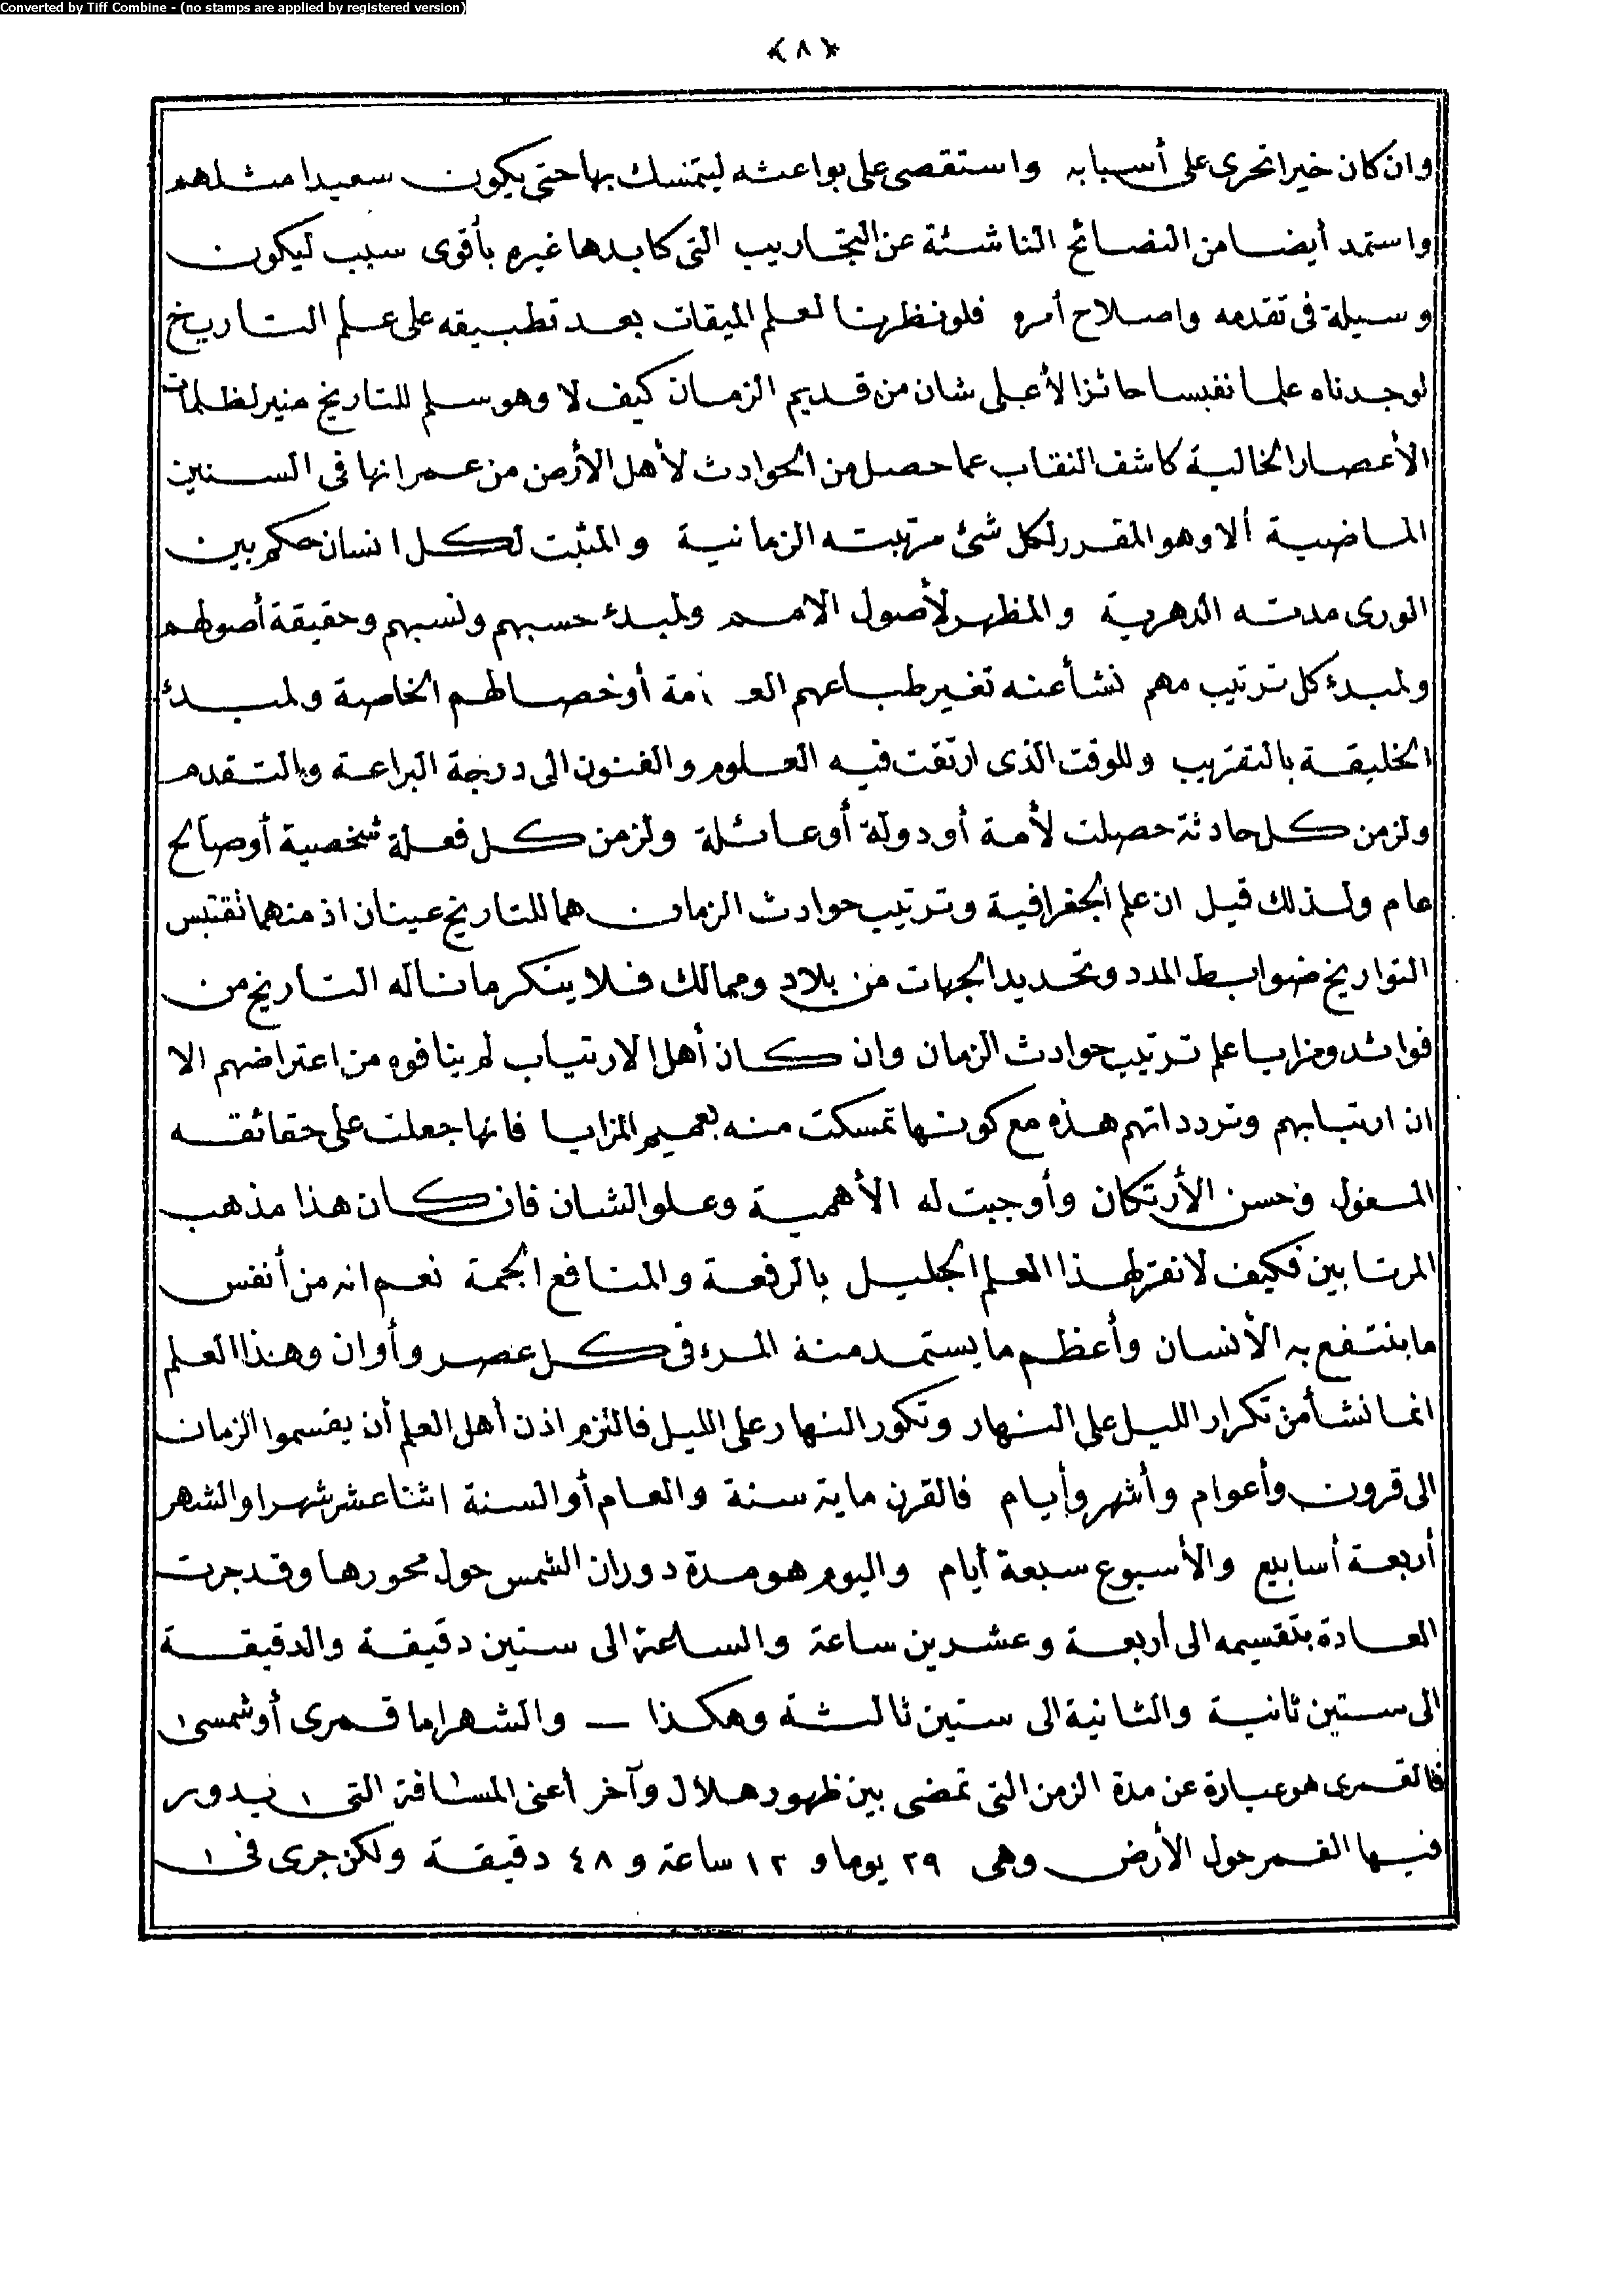 Converted by Tiff Combine - (no stamps are applied by registered version)
﴿٨﴾
وان كان خيرا تحرى على أسبابه واستقصى على بواعثه ليتمسك بها حتى يكون سعيدا مثلهم
واستمد أيضا من النصائح الناشئة عن التجاريب التى كابدها غيره بأقوى سبب ليكون
وسيلة فى تقدمه واصلاح أمره فلو نظرنا لعلم الميقات بعد تطبيقه على علم التاريخ
لوجدناه علما نفيسا حائزا لأعلى شان من قديم الزمان كيف لا وهو سلم للتاريخ منير لظلمات
الأعصار الخالية كاشف النقاب عما حصل من الحوادث لأهل الأرض من عمرانها فى السنين
الماضية ألا وهو المقرر لكل شئ مرتبته الزمانية والمثبت لكل انسان حكم بين
الورى مدته الدهرية والمظهر لأصول الامم ولمبدء حسبهم ونسبهم وحقيقة أصولهم
ولمبدء كل ترتيب مهم نشأ عنه تغير طباعهم العامة أو خصالهم الخاصة ولمبدء
الخليقة بالتقريب وللوقت الذى ارتقت فيه العلوم والفنون الى درجة البراعة والتقدم
ولزمن كل حادثة حصلت لأمة أو دولة أو عائلة ولزمن كل فعلة شخصية أو صالح
عام ولذلك قيل ان علم الجغرافية وترتيب حوادث الزمان هما للتاريخ عينان اذ منهما تقتبس
التواريخ ضوابط المدد وتحديد الجهات من بلاد وممالك فلا ينكر ما ناله التاريخ من
فوائد ومزايا علم ترتيب حوادث الزمان وان كان أهل الارتياب لم ينافوه من اعتراضهم الا
ان ارتيابهم وتردداتهم هذه مع كونها تمسكت منه بعميم المزايا فانها جعلت على حقائقه
المعول وحسن الأرتكان وأوجبت له الأهمية وعلو الشان فان كان هذا مذهب
المرتابين فكيف لا نقر لهذا العلم الجليل بالرفعة والمنافع الجمة نعم انه من أنفس
ما ينتفع به الأنسان وأعظم ما يستمد منه المرء فى كل عصر وأوان وهذا العلم
انما نشأ من تكرار الليل على النهار وتكور النهار على الليل فالتزم اذن أهل العلم أن يقسموا الزمان
الى قرون وأعوام وأشهر وأيام فالقرن ماية سنة والعام أو السنة اثنا عشر شهرا والشهر
أربعة أسابيع والأسبوع سبعة أيام واليوم هو مدة دوران الشمس حول محورها وقد جرت
العادة بتقسيمه الى أربعة وعشرين ساعة والساعة الى ستين دقيقة والدقيقة
الى ستين ثانية والثانية الى ستين ثالثة وهكذا — والشهر اما قمرى أو شمسى
فالقمرى هو عبارة عن مدة الزمن التى تمضى بين ظهور هلال وآخر أعنى المسافة التى يدور
فيها القمر حول الأرض وهى ٢٩ يوما و ١٢ ساعة و ٤٨ دقيقة ولكن جرى فى